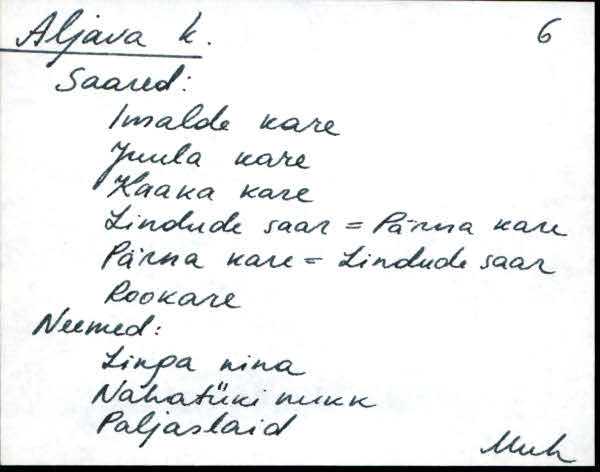 Aljava k. 6
Saared:
Imalde kare
Juula kare
Kaaka kare
Lindude saar = Pärna kare
Pärna kare = Lindude saar
Rookare
Neemed:
Linga nina
Nahatüki nukk
Paljaslaid
Muh